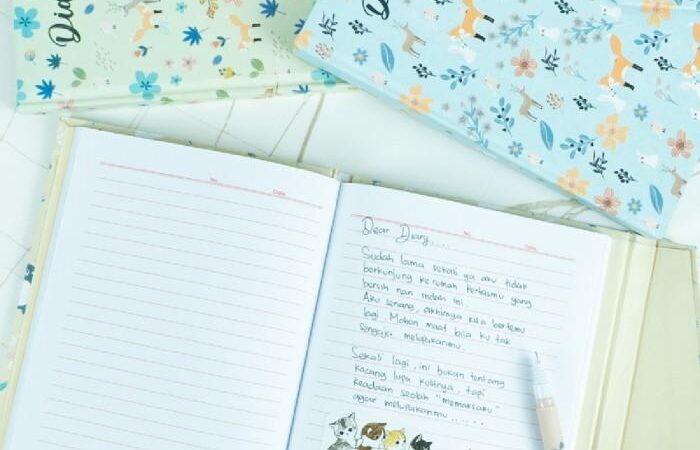 Dia
D
No.
Date
No.
Date
Dear Diary.....
Sudah lama sekali ya aku tidak
berkunjung ke rumah kertasmu yang
bersih nan indah ini.
Aku senang, akhirnya kita bertemu
lagi. Mohon maaf bila ku tak
sengaja melupakanmu
Sekali lagi, ini bukan tentang
kacang lupa kulitnya, tapi
keadaan seolah "memaksaku"
agar melupakanmu ......